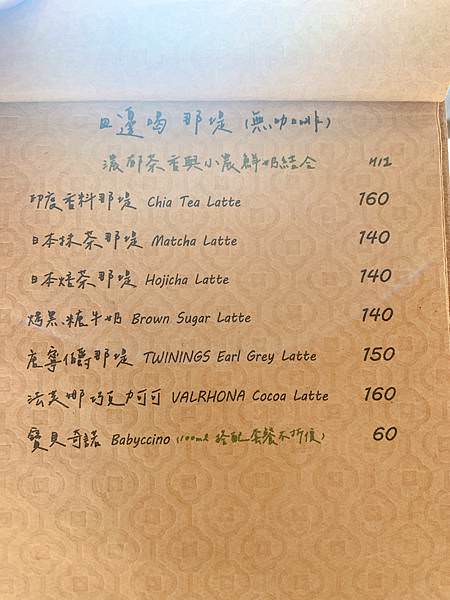 田邊喝 那堤 (無咖啡)
濃郁茶香與小農鮮奶結合 H/I
印度香料那堤 Chia Tea Latte 160
日本抹茶那堤 Matcha Latte 140
日本焙茶那堤 Hojicha Latte 140
烤黑糖牛奶 Brown Sugar Latte 140
唐寧伯爵那堤 TWININGS Earl Grey Latte 150
法芙娜巧克力可可 VALRHONA Cocoa Latte 160
寶貝奇諾 Babyccino (100ml 搭配套餐不折價) 60